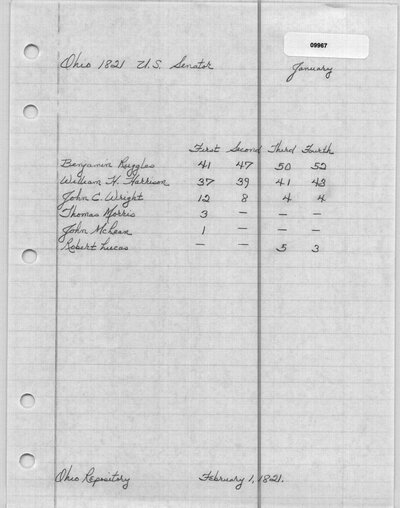 09967
Ohio 1821 U.S. Senator January
First Second Third Fourth
Benjamin Ruggles 41 47 50 52
William H. Harrison 37 39 41 43
John C. Wright 12 8 4 4
Thomas Morris 3 — — —
John McLean 1 — — —
Robert Lucas — — 5 3
Ohio Repository February 1, 1821.